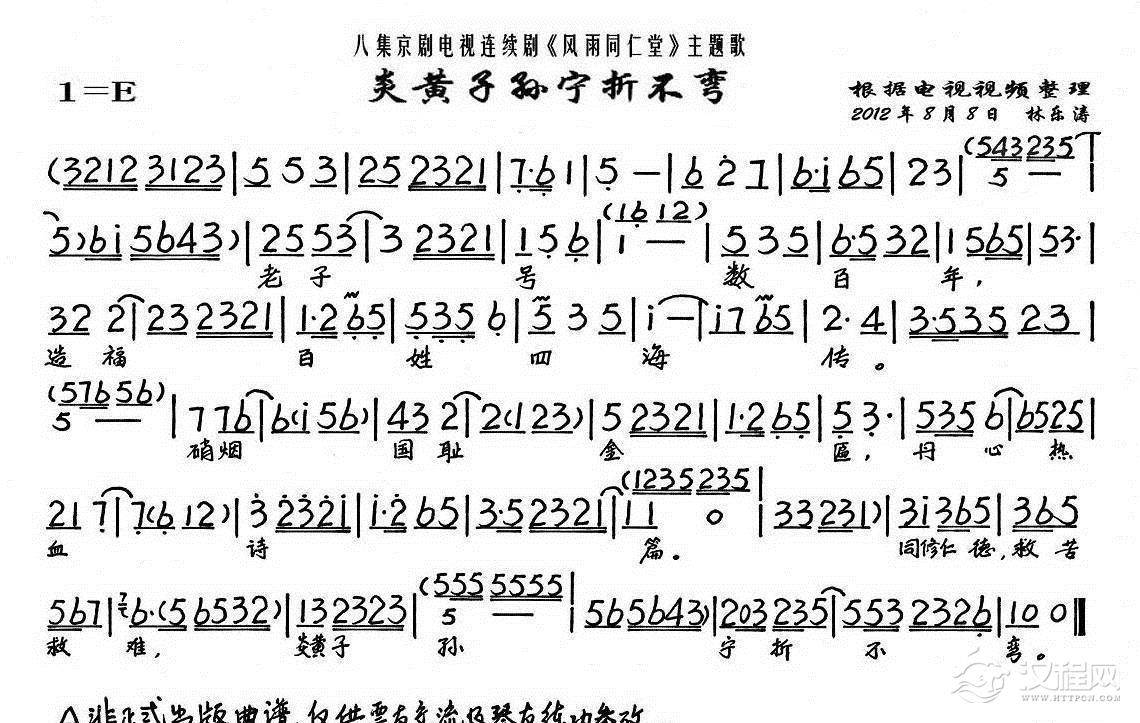 八集京剧电视连续剧《风雨同仁堂》主题歌
炎黄子孙宁折不弯
1=E
根据电视视频整理
2012年8月8日 林乐涛
(3212 3123 | 5 5 3 | 25 2321 | 7·6 1 | 5 — | 6 2 7 | 6·i 65 | 23 | (543 235 5 —
5) 6i 5643) | 25 53 | 3 2321 | 1 5 6 | (1612) 1 — | 5 3 5 | 6·5 32 | 1 565 | 53·
老子号数百年,
32 2 | 23 2321 | 1·2 65 | 535 6 | 5 3 5 | i — | i7 65 | 2·4 | 3·535 23 |
造福百姓四海传。
(576 56) 5 — | 7 76 | 6(i 56) | 43 2 | 2(1 23) | 5 2321 | 1·2 65 | 5 3· | 535 6 | 6525 |
硝烟国耻金區,丹心热
21 7 | 7(6 12) | 3 2321 | 1·2 65 | 3·5 2321 | (1235 235 11 0 | 33 231) | 3i 365 | 365
血诗篇。同修仁德,救苦
567 | 6·(5 6532) | 13 2323 | (555 5555 5 — | 565643) | 203 235 | 553 2326 | 10 0
救难,炎黄子孙宁折不弯。
△非正式出版曲谱,仅供票友交流及琴友练功参考
汉程网
HTTPCN.COM